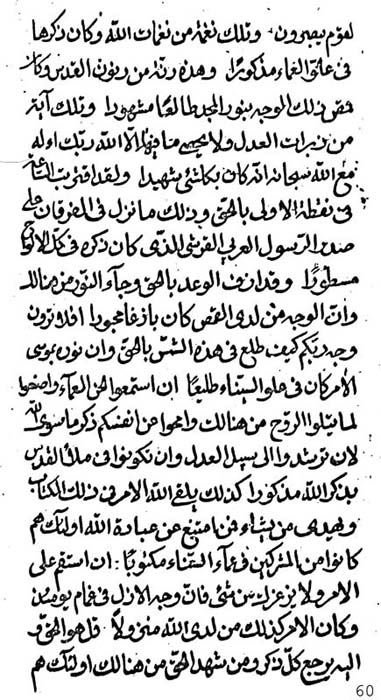 لقوم يبصرون وتلك نغمة من نغمات الله وكان ذكرها
فى علوّ العماء مذكورًا وهذه رنّة من رنون القدس وكان
ذلك الوجه بنور المجد طالعًا مشهودا وتلك آية
من العدل ولا الّا الله ربّك
مع الله سبحانه انّه كان بكلّشئ شهيدا ولقد اقتربت الساعة
فى نقطة الاولى بالحقّ وذلك ما نزل فى الفرقان على
صدر الرسول العربى القرشى الّذى كان ذكره فى كل الالواح
مسطورًا وقد ازف الوعد بالحقّ وجآء النور من هنالك
وانّ الوجه من لدى القمص كان بازغا افلا ترون
وجه ربّكم كيف طلع فى هذه الشمس بالحقّ وان نوره
الامر كان فى علو السيناء طليعًا ان استمعوا لحن العمآء واصغوا
لما يتلوا الروح من هنالك وامحوا عن انفسكم ذكر ما سوى الله
لان ترشدوا الى سبل العدل وان تكونوا فى ملأ القدس
بذكر الله مذكورا كذلك يلقى الله الامر فى ذلك الكتاب
ويهدى من يشاء فمن امتنع عن عبادة الله اولئك هم
كانوا من المشركين فى عمآء السّناء مكتوبًا ان استقم على
الامر ولا يزعزعك من شئ فانّ وجه الازل فى غمام يومئذ
وكان الامر كذلك من لدى الله منزولًا قل هو الحقّ و
اليه يرجع كلّ ذكر ومن شهد الحقّ من هنالك اولئك هم
60